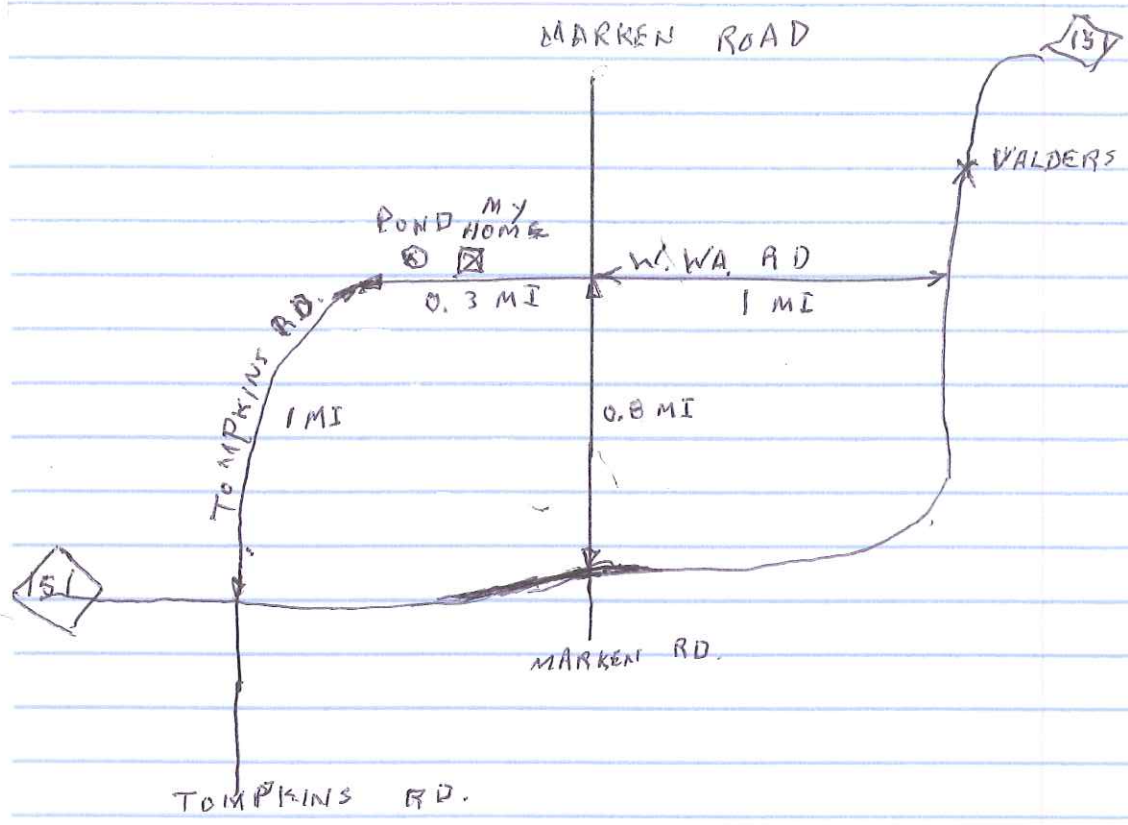 MARKEN ROAD
151
VALDERS
MY
POND HOME
W. WA. RD
0.3 MI
1 MI
TOMPKINS RD.
1 MI
0.8 MI
151
MARKEN RD.
TOMPKINS RD.